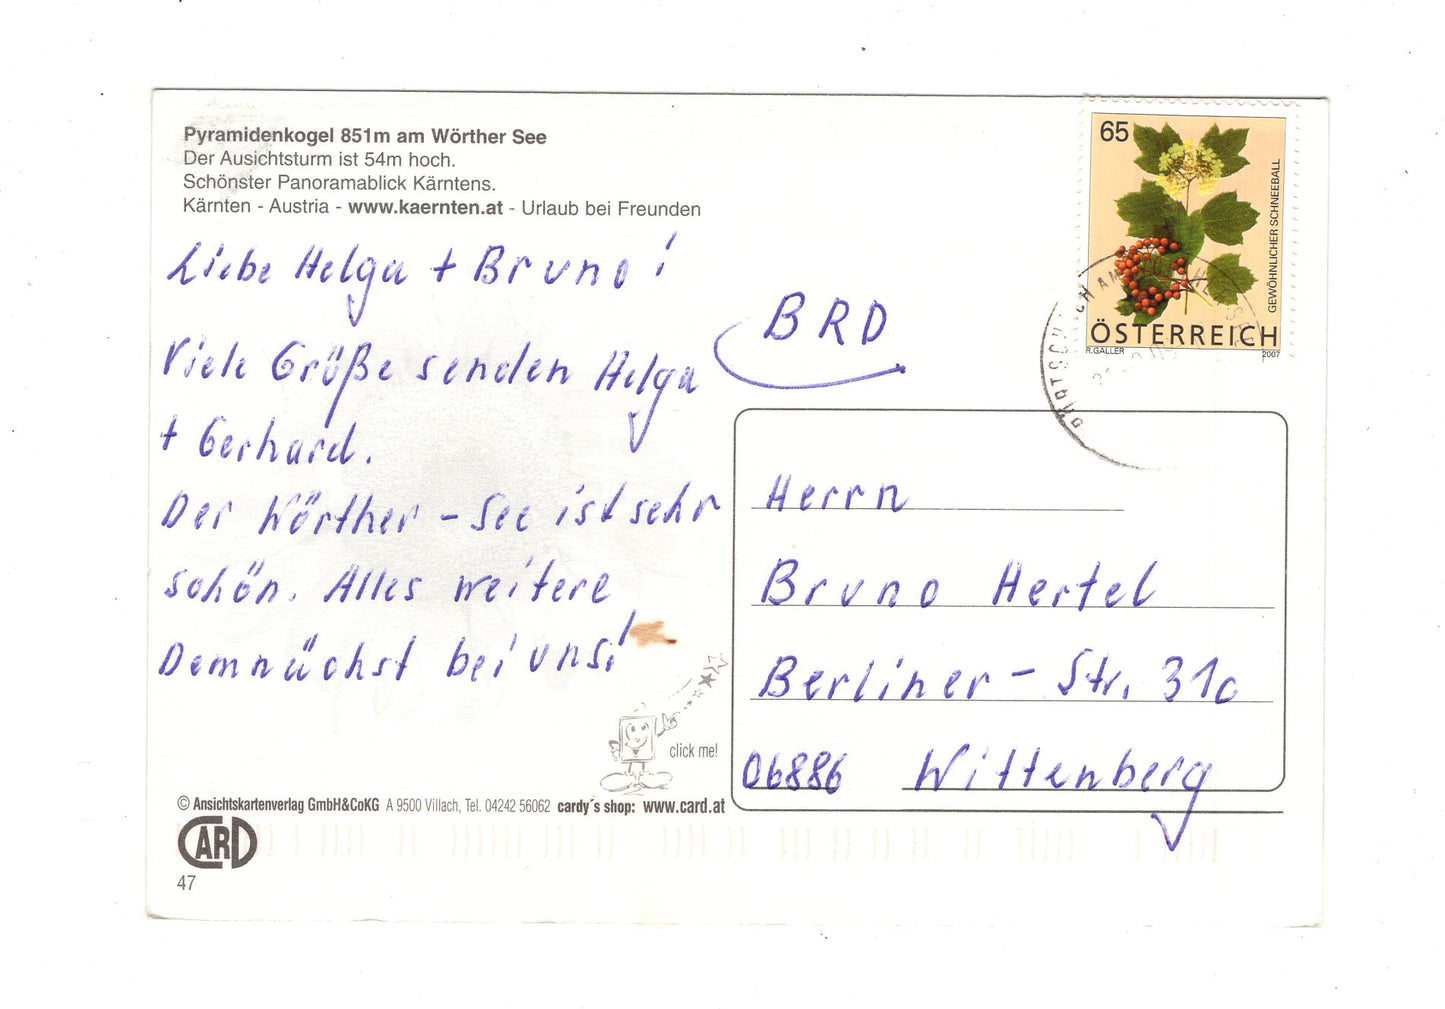 Pyramidenkogel 851m am Wörther See
Der Ausichtsturm ist 54m hoch.
Schönster Panoramablick Kärntens.
Kärnten - Austria - www.kaernten.at - Urlaub bei Freunden
Liebe Helga + Bruno!
Viele Größe senden Helga
+ Gerhard.
Der Wörther - See ist sehr
schön. Alles weitere
Demnächst bei uns!
click me!
© Ansichtskartenverlag GmbH&CoKG A 9500 Villach, Tel. 04242 56062 cardy´s shop: www.card.at
CARD
47
65
GEWÖHNLICHER SCHNEEBALL
ÖSTERREICH
R.GALLER 2007
BRD
Herrn
Bruno Hertel
Berliner - Str. 31c
06886 Wittenberg